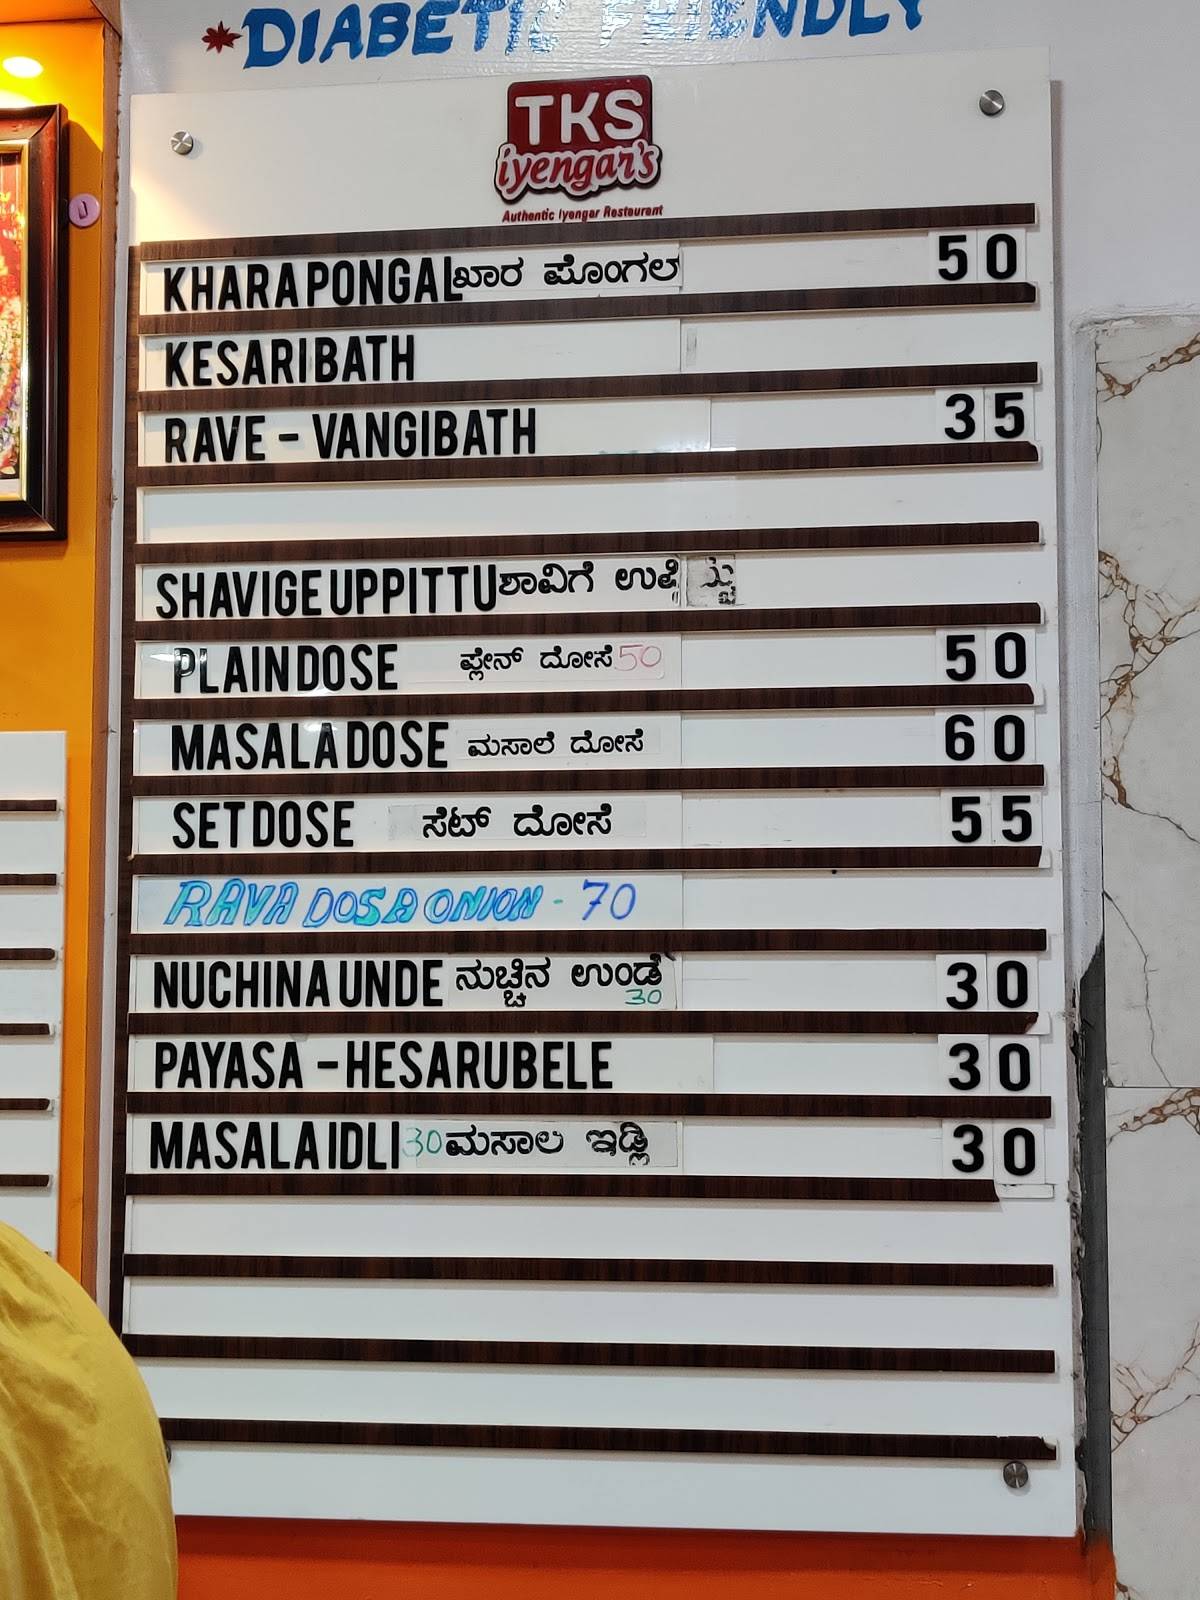 DIABETIC FRIENDLY
TKS
iyengar's
Authentic Iyengar Restaurant
KHARA PONGAL ಖಾರ ಪೊಂಗಲ್ 50
KESARIBATH
RAVE - VANGIBATH 35
SHAVIGE UPPITTU ಶಾವಿಗೆ ಉಪ್ಪಿಟ್ಟು
PLAIN DOSE ಪ್ಲೇನ್ ದೋಸೆ 50 50
MASALA DOSE ಮಸಾಲೆ ದೋಸೆ 60
SET DOSE ಸೆಟ್ ದೋಸೆ 55
RAVA DOSA ONION - 70
NUCHINA UNDE ನುಚ್ಚಿನ ಉಂಡೆ 30 30
PAYASA - HESARUBELE 30
MASALA IDLI 30 ಮಸಾಲ ಇಡ್ಲಿ 30